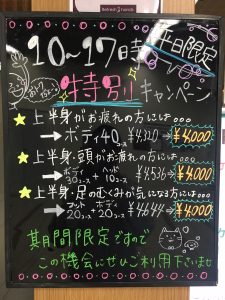 Refresh hands
平日限定
10～17時までの
特別キャンペーン
★上半身がお疲れの方には・・・
→ボディ40コース ¥4,320→¥4,000
★上半身・頭がお疲れの方には・・・
→ボディ30コース+ヘッド10コース ¥4,536→¥4,000
★上半身・足のむくみが気になる方には・・・
→フット20コース+ボディ20コース ¥4,644→¥4,000
期間限定ですので
この機会にぜひご利用下さいませ